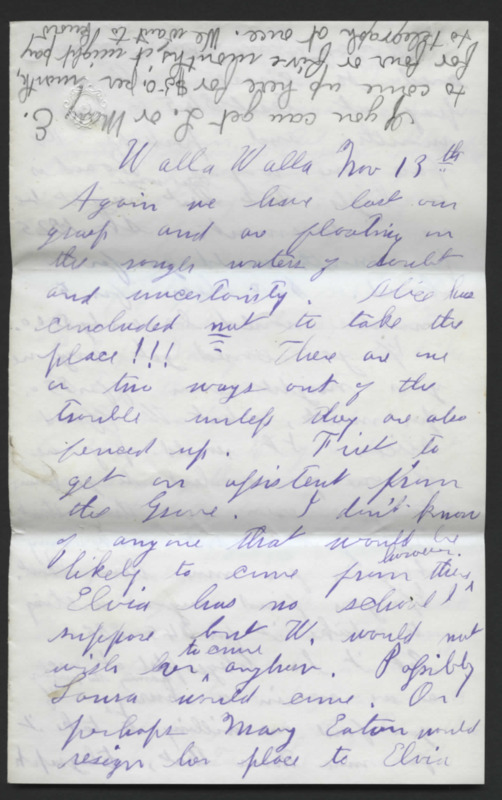 If you can get L. or Mary E.
to come up here for $50 per month,
for four or five months it might pay
to telegraph at once. We want to know
Walla Walla Nov 13th
Again we have lost our
grasp and are floating on
the rough waters of doubt
and uncertainty. Alice has
concluded not to take the
place!!! There are one
or two ways out of the
trouble unless they are also
fenced up. First to
get an assistent from
the Grove. I don't know
of anyone that would be
likely to come from there however.
Elvia has no school I
suppose but W. would not
wish her to come anyhow. Possibly
Laura would come. Or
perhaps Mary Eaton would
resign her place to Elvia